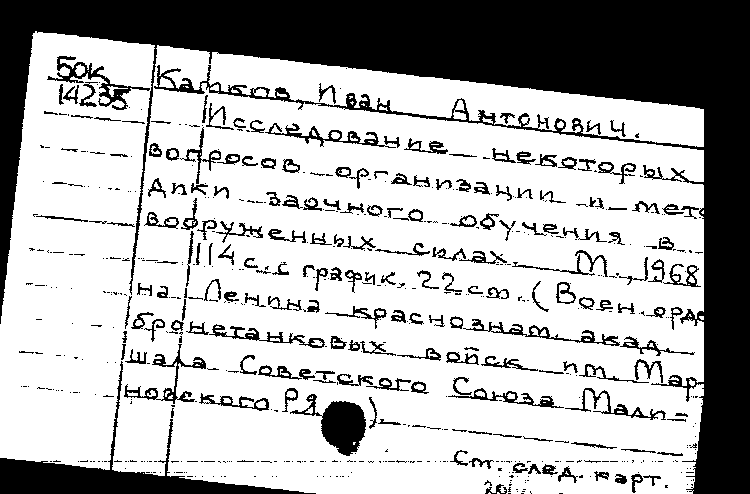 50К
14235
Катков, Иван Антонович.
Исследование некоторых
вопросов организации и мето
дики заочного обучения в
вооруженных силах. М., 1968
114 с. с график. 22 см. (Воен. орде
на Ленина краснознам. акад.
бронетанковых войск им. Мар-
шала Советского Союза Мали=
новского Р.Я ).
См. след. карт.